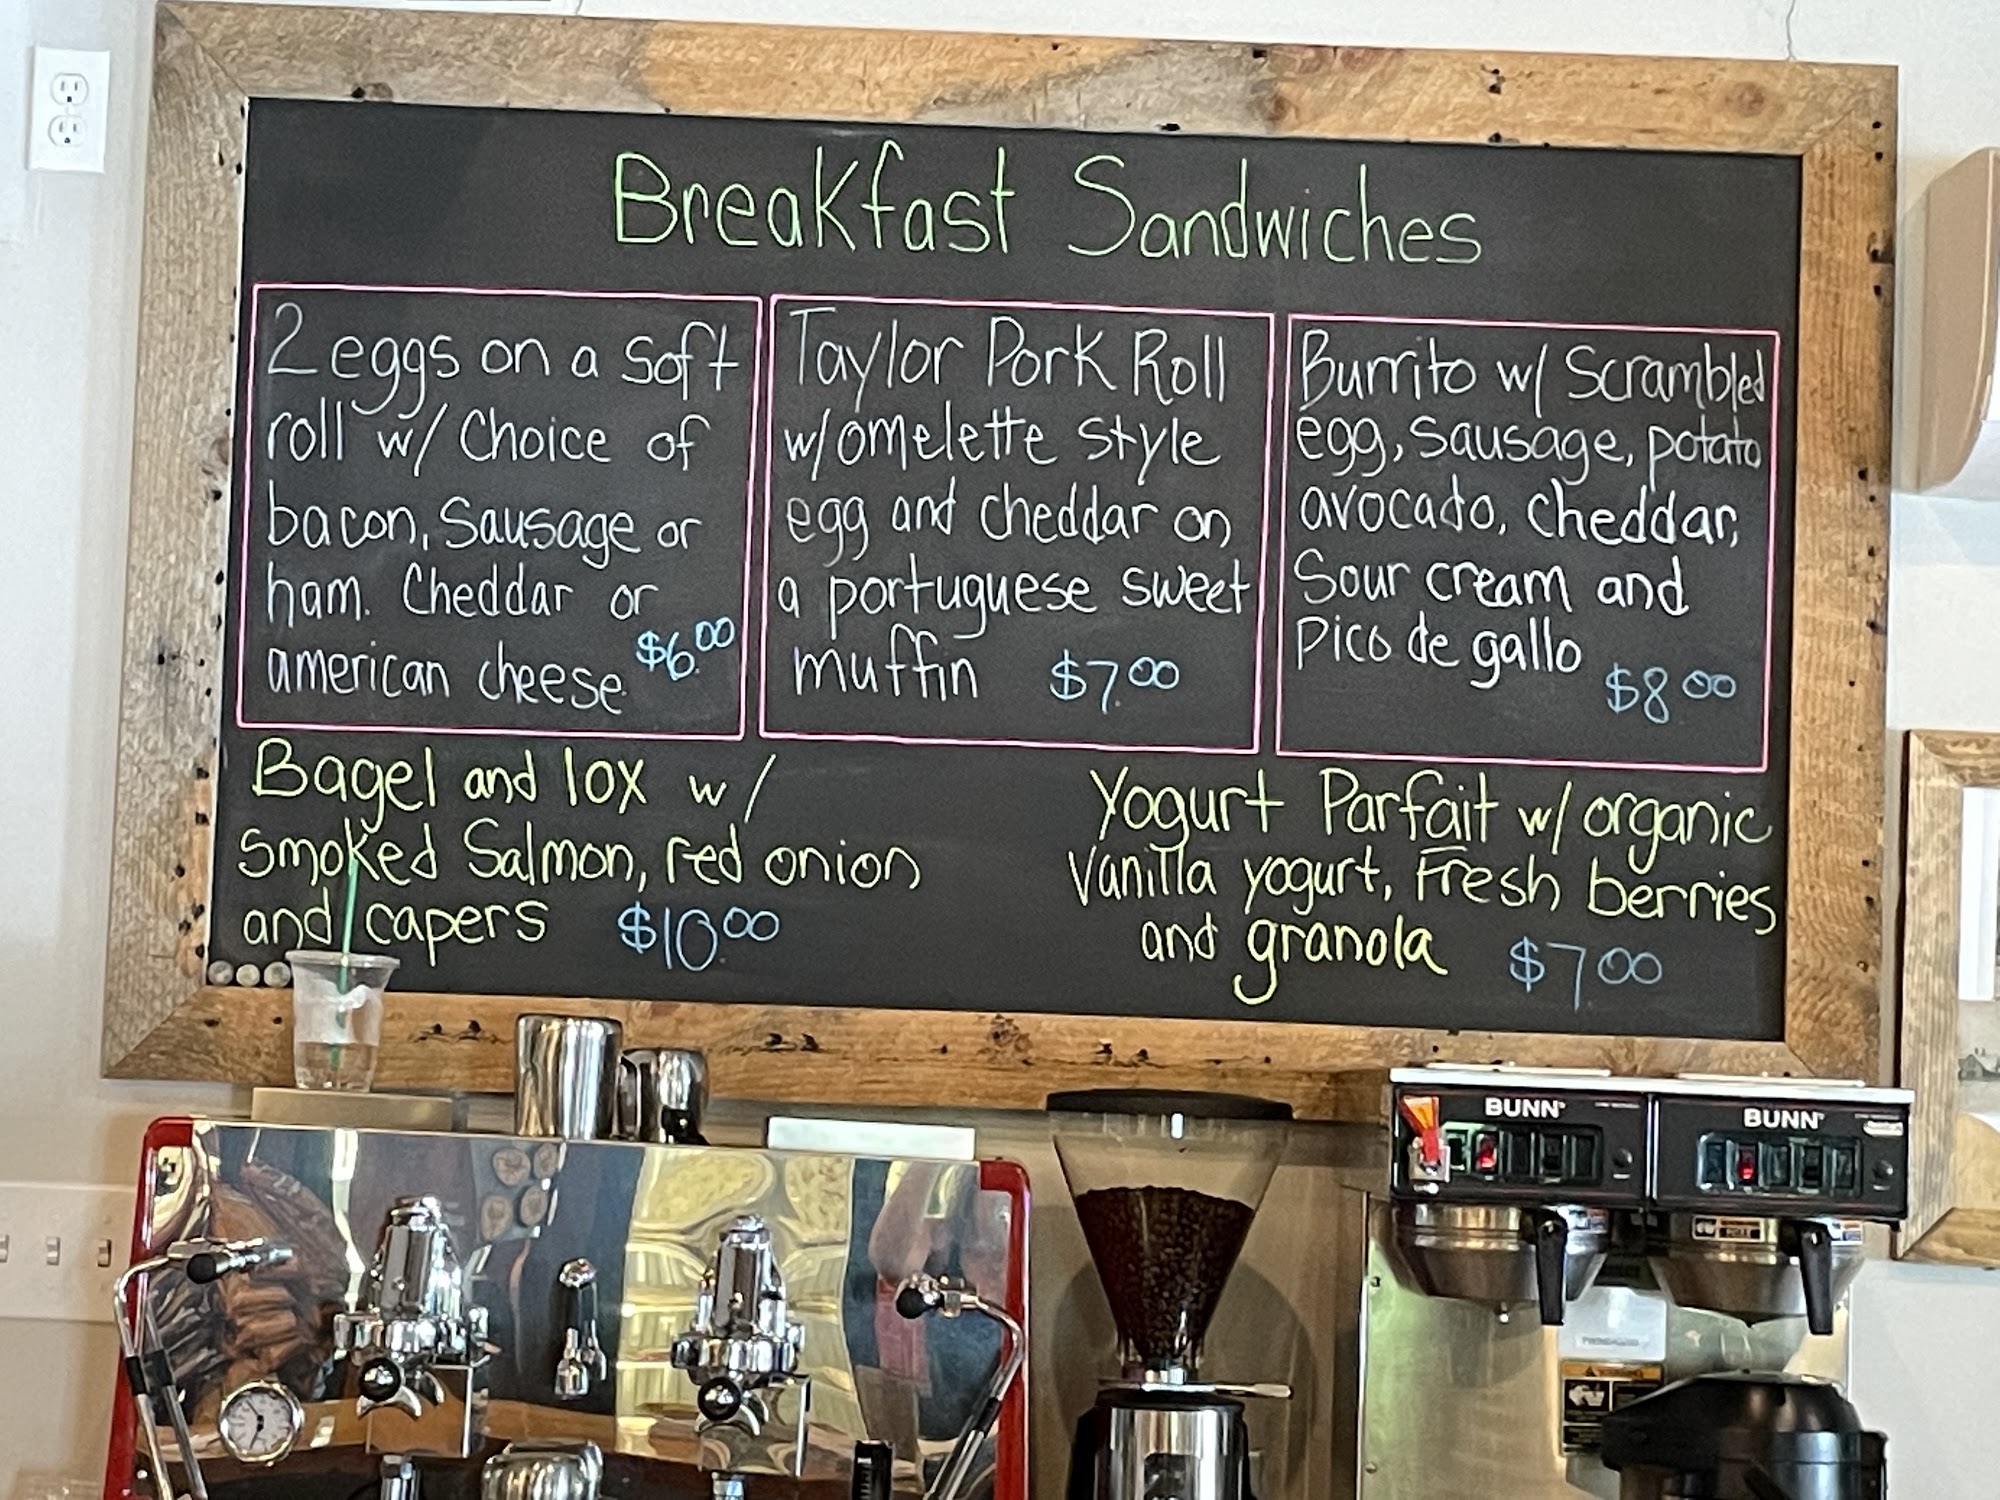 Breakfast Sandwiches
2 eggs on a soft
roll w/ Choice of
bacon, Sausage or
ham. Cheddar or
american cheese $6.00
Taylor Pork Roll
w/omelette style
egg and cheddar on
a portuguese sweet
muffin $7.00
Burrito w/ Scrambled
egg, sausage, potato
avocado, cheddar,
Sour cream and
pico de gallo $8.00
Bagel and lox w/
smoked Salmon, red onion
and capers $10.00
Yogurt Parfait w/ organic
Vanilla yogurt, Fresh berries
and granola $7.00
BUNN
BUNN